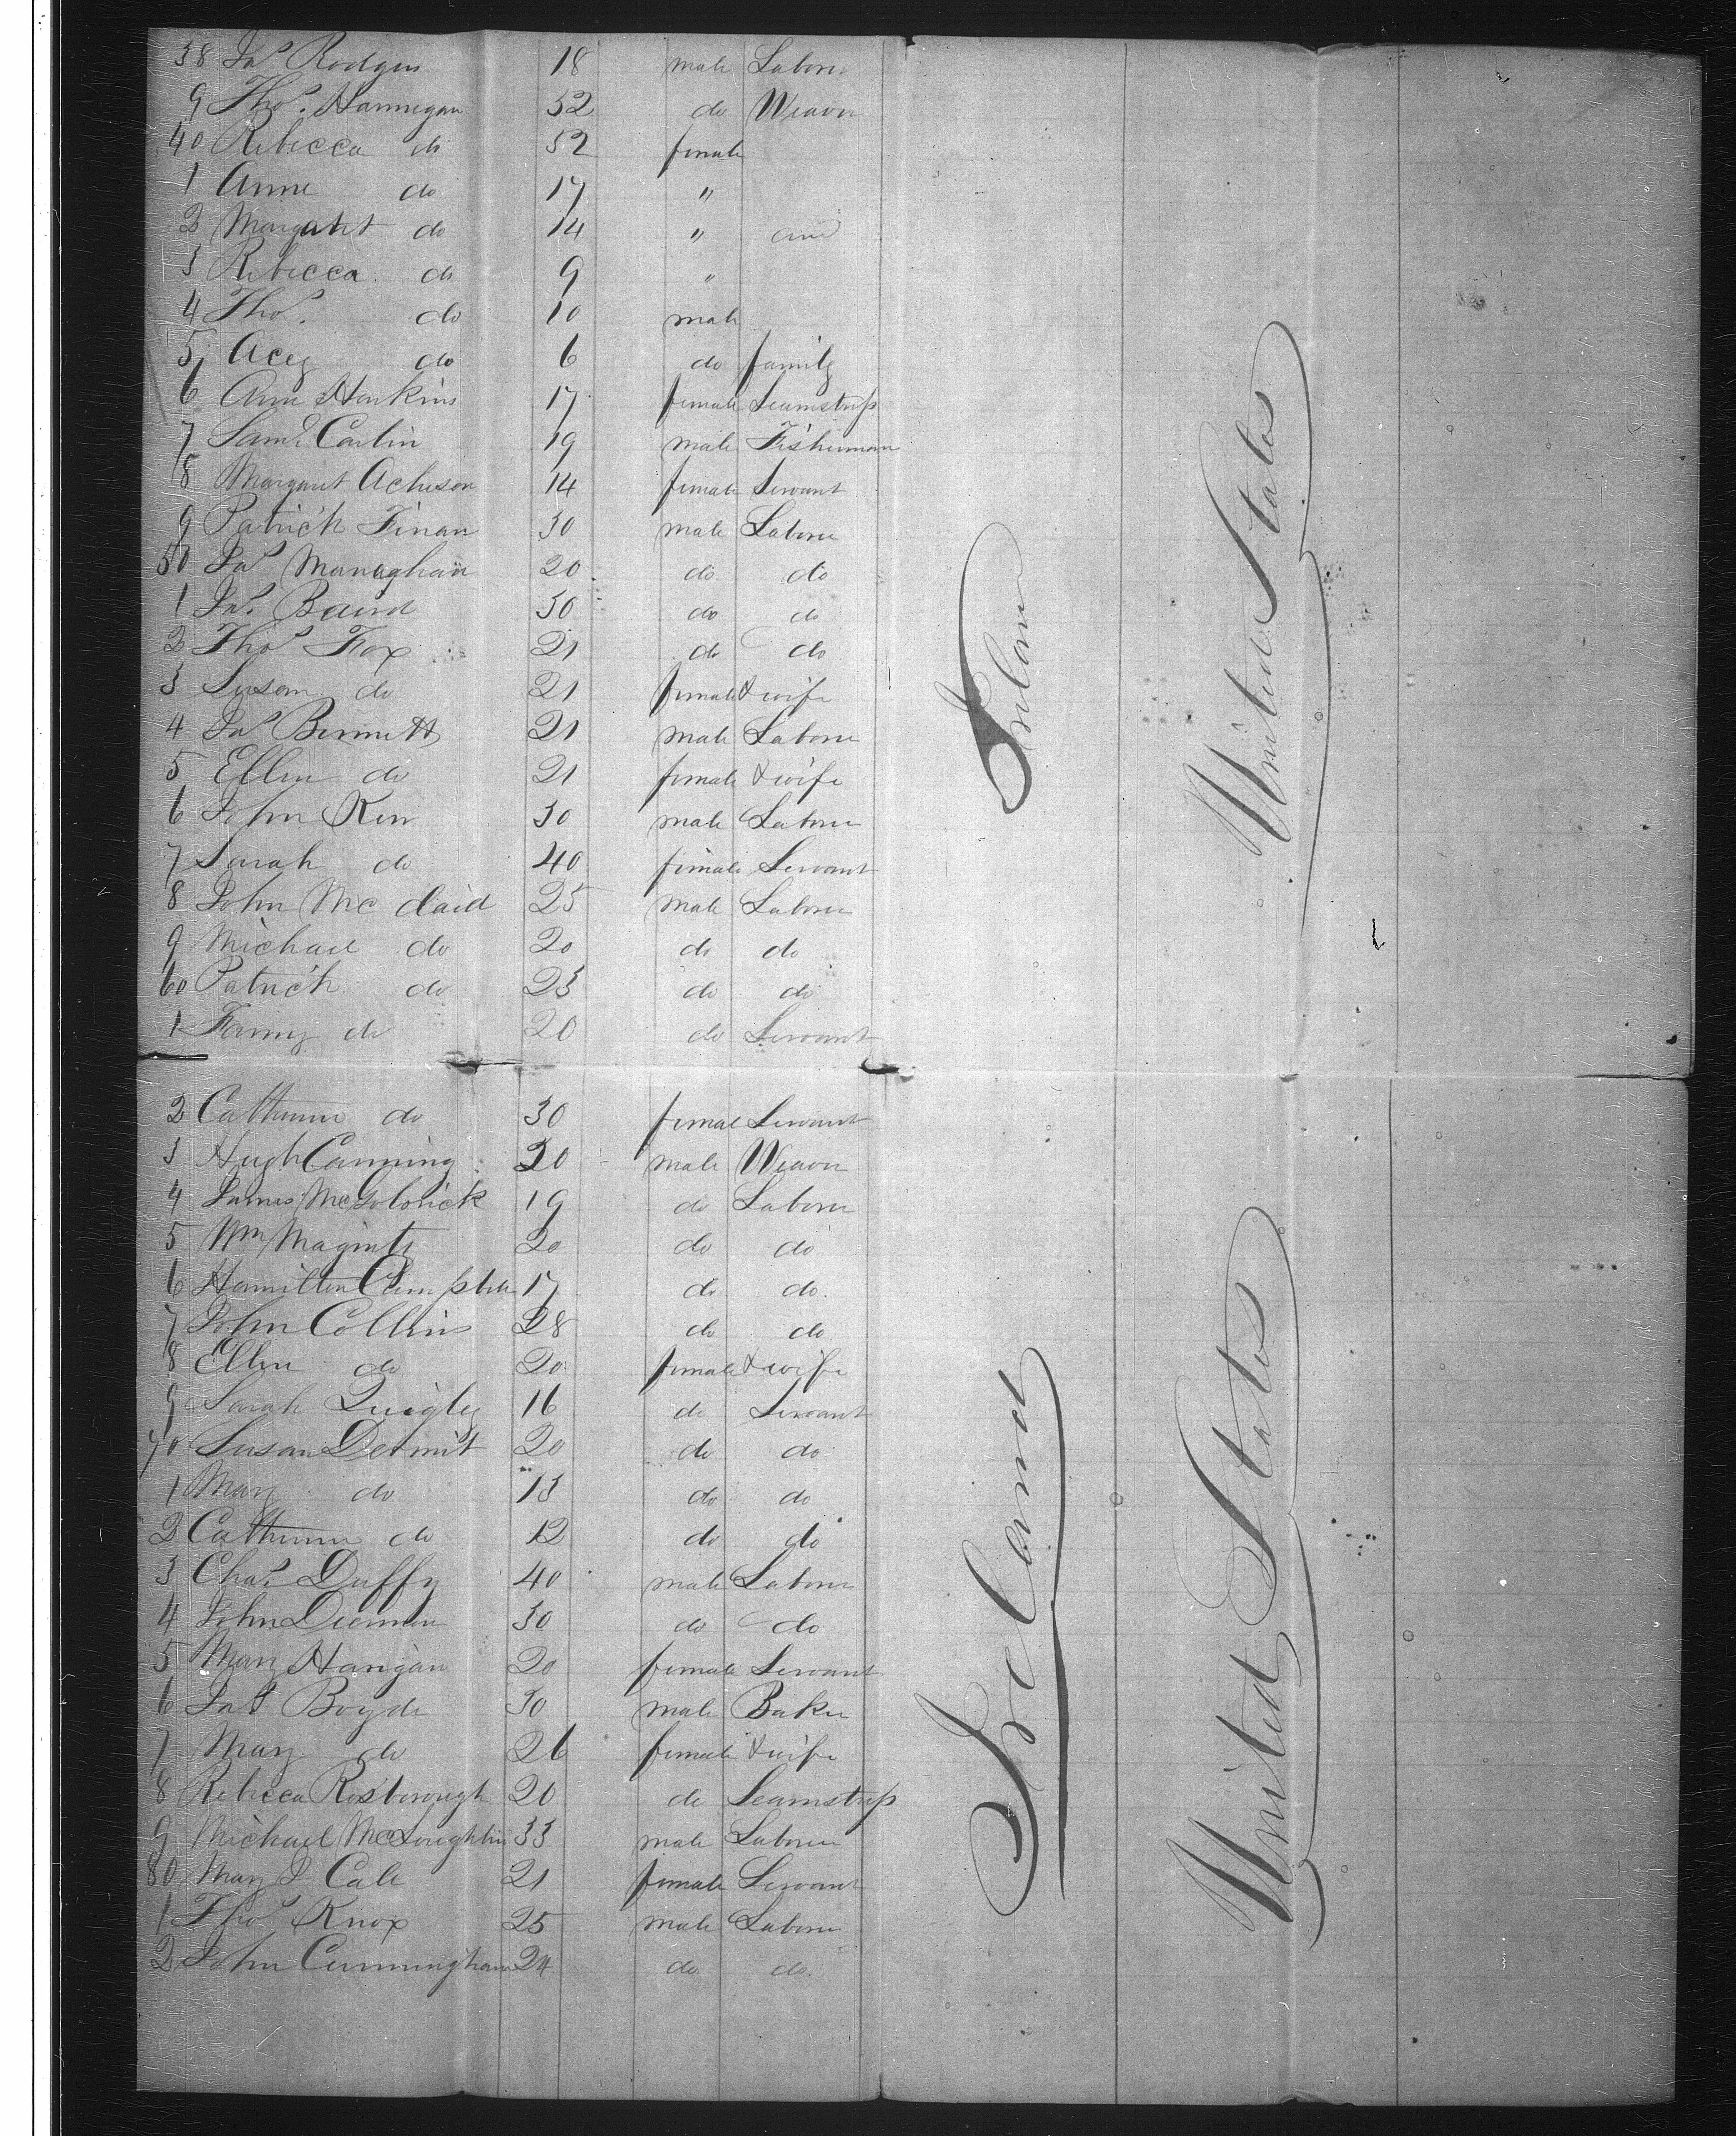 38 Jas Rodgers 18 male Laborer
9 Thos. Hannegan 52 do Weaver
40 Rebecca do 52 female
1 Anne do 17 "
2 Margaret do 14 " and
3 Rebecca do 9 "
4 Thos. do 10 male
5 Acey do 6 do family
6 Ann Harkins 17 female Seamstress
7 Saml Carlin 19 male Fisherman
8 Margaret Acheson 14 female Servant
9 Patrick Finan 30 male Laborer
50 Jas Managhan 20 do do
1 Jas. Baird 30 do do
2 Thos Fox 21 do do
3 Susan do 21 female & wife
4 Jas Bennett 21 male Laborer
5 Ellen do 21 female & wife
6 John Kerr 30 male Laborer
7 Sarah do 40 female Servant
8 John Mc daid 25 male Laborer
9 Michael do 20 do do
60 Patrick do 23 do do
1 Fanny do 20 do Servant
Ireland
United States
2 Catherine do 30 female Servant
3 Hugh Canning 20 male Weaver
4 James McGolorick 19 do Laborer
5 Wm Maginty 20 do do
6 Hamilton Campbell 17 do do
7 John Collins 28 do do
8 Ellen do 20 female & wife
9 Sarah Quigley 16 do Servant
70 Susan Dermit 20 do do
1 Mary do 13 do do
2 Catherine do 12 do do
3 Chas. Duffy 40 male Laborer
4 John 30 do do
5 Mary Harigan 20 female Servant
6 Jas Boyde 30 male Baker
7 Mary do 26 female & wife
8 Rebecca Rosborough 20 do Seamstress
9 Michael McLoughlin 33 male Laborer
80 Mary J Cale 21 female Servant
1 Thos Knox 25 male Laborer
2 John Cunningham 24 do do
Ireland
United States